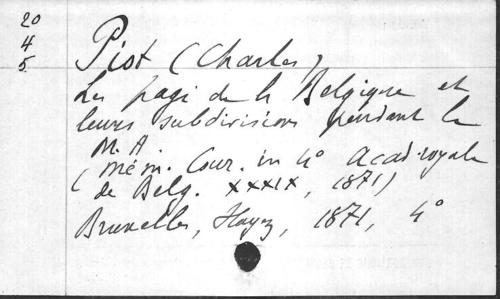 20
4
5
Piot (Charles)
Les pagi de la Belgique et
leurs subdivisions pendant le
M. A.
(Mém. Cour. in 4° Acad. royale
de Belg. XXXIX, 1871)
Bruxelles, Hayez, 1871, 4°